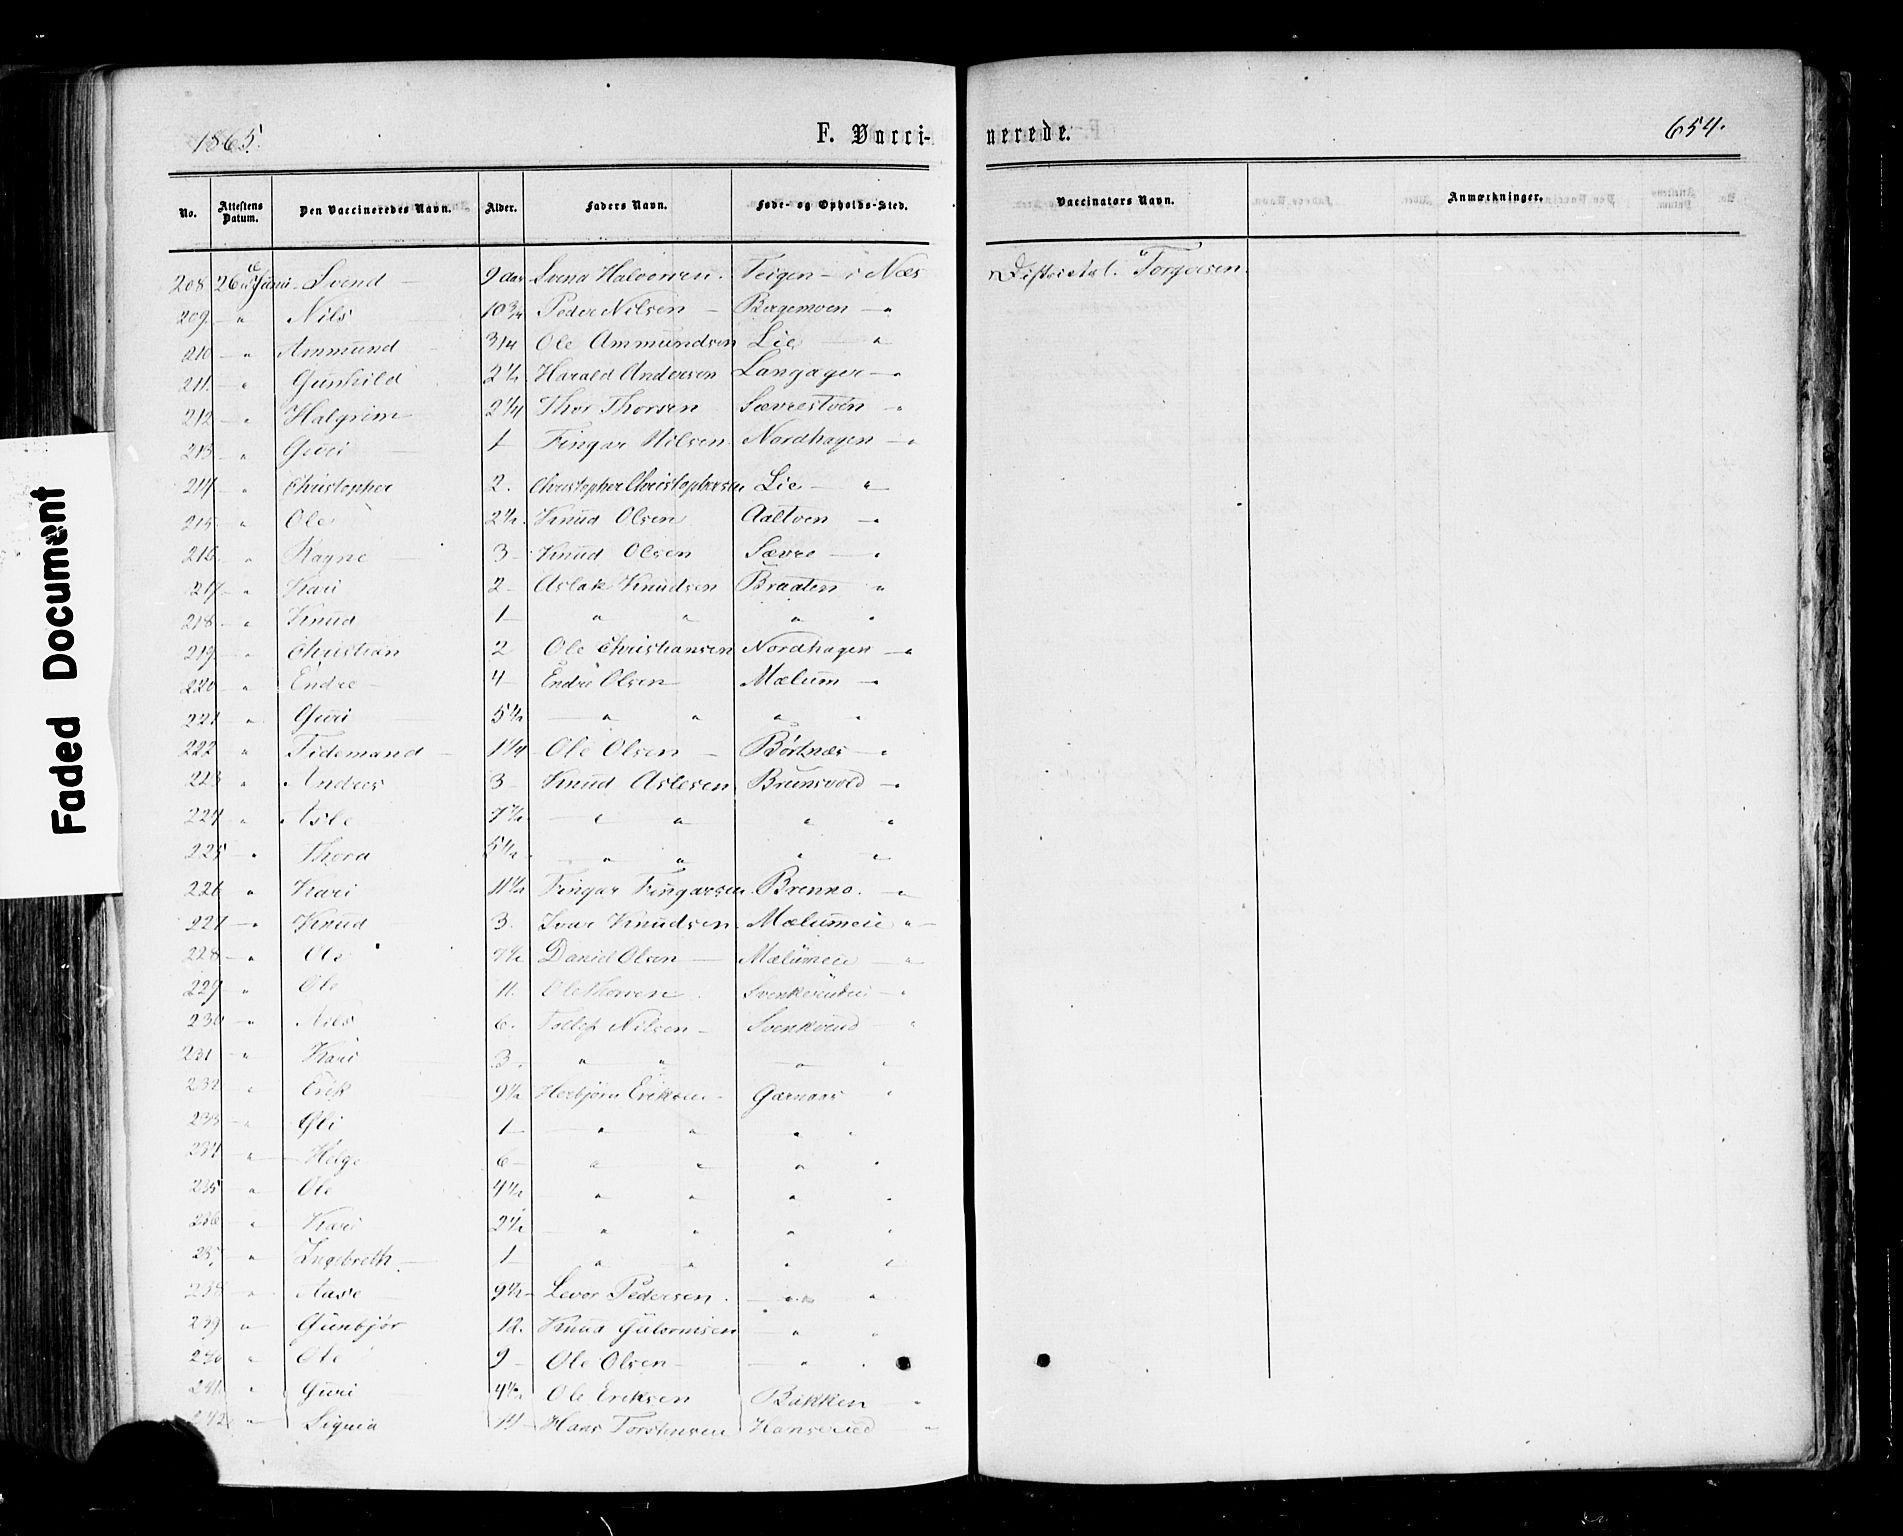 1865.
F. Vacci-
No. Attestens Datum. Den Vaccineredes Navn. Alder. Faders Navn. Føde- og Opholds-Sted.
208 26de Juni Svend 9 Aar Svend Halvorsen. Teigen i Næs
209. " Nils 10 3/4 Peder Nilsen Bergemoen "
210 " Ammund 3 1/4 Ole Ammundsen Lie "
211. " Gunhild 2 1/2 Harald Andersen Langager "
212 " Halgrim 2 1/4 Thor Thorsen "
213 " Guri 1 Fingar Nilsen Nordhagen "
214 " Christopher 2. Christopher Christophersen Lie "
215 " Ole 2 1/2. Knud Olsen "
216 " Ragne 3 Knud Olsen Sævre "
217 " Kari 2 Aslak Knudsen Braaten "
218 " Knud 1 " " " "
219 " Christian 2 Ole Christiansen Nordhagen "
220 " Endre 4 Endre Olsen Mælum "
221 " Guri 5 1/2 " " " "
222 " Tidemand 1 1/4 Ole Olsen Børtnæs "
223 " Andres 3 Knud Aslesen Brunsvold "
224 " Asle 7 1/2 " " " "
225 " Thora 5 1/2 " " " "
226 " Kari 11 1/2 Fingar Fingarsen Brenno. "
227 " Knud 3. Ivar Knudsen Mælumeie "
228 " Ole 7 1/2 Daniel Olsen Mælumeie "
229 " Ole 11. Ole Thoresen "
230 " Nils 6. Tollef Nilsen Svenkerud "
231 " Kari 3. " " " "
232 " Erik 9 1/2 Herbjørn Eriksen Garnaas "
233 " 1 " " " "
234 " Helge 6 " " " "
235 " Ole 4 1/2 " " " "
236 " Kari 2 1/2 " " " "
237 " Ingebreth 1 " " " "
238 " Aase 9 1/2 Levor Pedersen. " "
239 " Gunbjør 12. Knud Guttormsen " "
240 " Ole 9 Ole Olsen " "
241 " Guri 4 1/2 Ole Eriksen Bakken "
242 " Signia 14 Hans Torstensen Hanserud "
nerede.
654.
Vaccinators Navn. Anmærkninger.
Districtsl. Torgersen
Faded Document